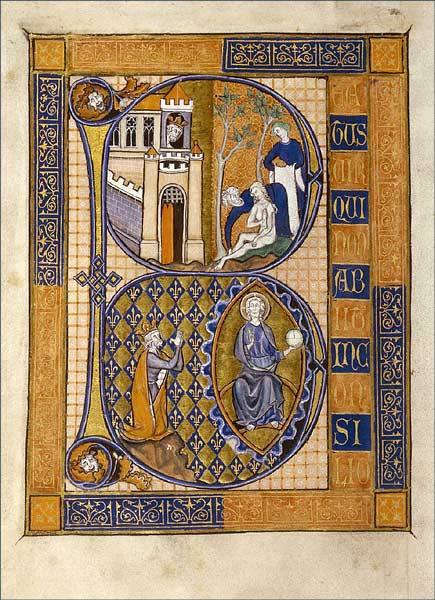 B
EA
TUS
VIR
QUI
NON
AB
IIT
INC
ON
SI
LIO